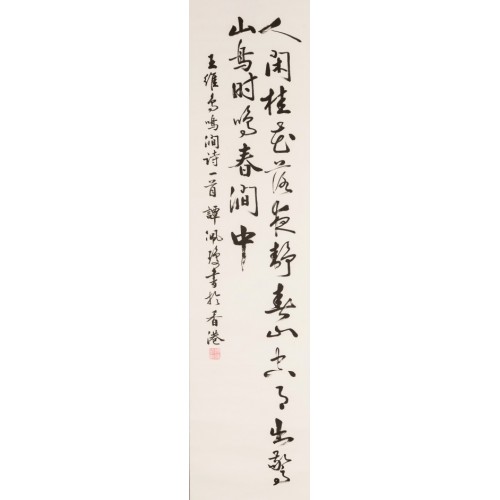 人闲桂花落夜静春山空月出驚
山鸟时鸣春涧中
王维鸟鸣涧诗一首 譚珮瓊書於香港